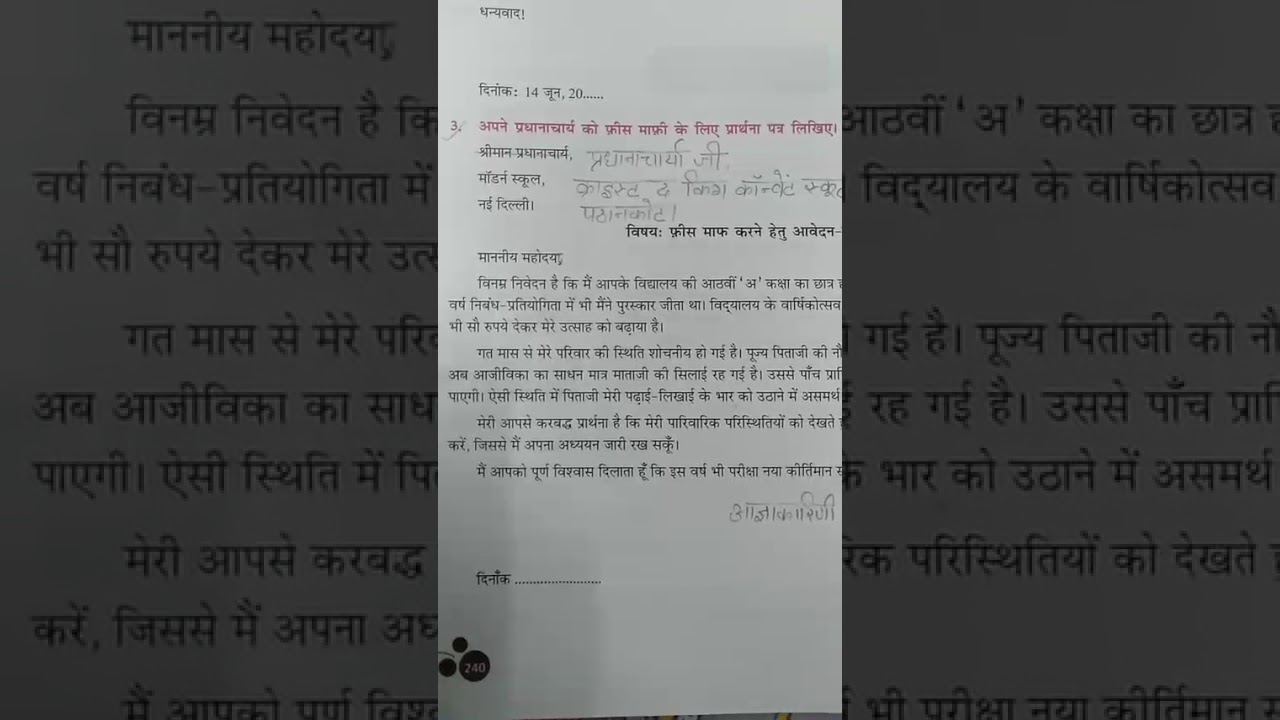 धन्यवाद!
दिनांक: 14 जून, 20......
3. अपने प्रधानाचार्य को फ़ीस माफ़ी के लिए प्रार्थना पत्र लिखिए।
श्रीमान प्रधानाचार्य, प्रधानाचार्या जी,
मॉडर्न स्कूल, क्राइस्ट द किंग कॉन्वेंट स्कूल
नई दिल्ली। पठानकोट।
विषय: फ़ीस माफ करने हेतु आवेदन-
माननीय महोदया,
विनम्र निवेदन है कि मैं आपके विद्यालय की आठवीं ‘अ’ कक्षा का छात्र
वर्ष निबंध-प्रतियोगिता में भी मैंने पुरस्कार जीता था। विद्यालय के वार्षिकोत्सव
भी सौ रुपये देकर मेरे उत्साह को बढ़ाया है।
गत मास से मेरे परिवार की स्थिति शोचनीय हो गई है। पूज्य पिताजी की
अब आजीविका का साधन मात्र माताजी की सिलाई रह गई है। उससे पाँच
पाएगी। ऐसी स्थिति में पिताजी मेरी पढ़ाई-लिखाई के भार को उठाने में असमर्थ
मेरी आपसे करबद्ध प्रार्थना है कि मेरी पारिवारिक परिस्थितियों को देखते
करें, जिससे मैं अपना अध्ययन जारी रख सकूँ।
मैं आपको पूर्ण विश्वास दिलाता हूँ कि इस वर्ष भी परीक्षा नया कीर्तिमान
आज्ञाकारिणी
दिनाँक ........................
240